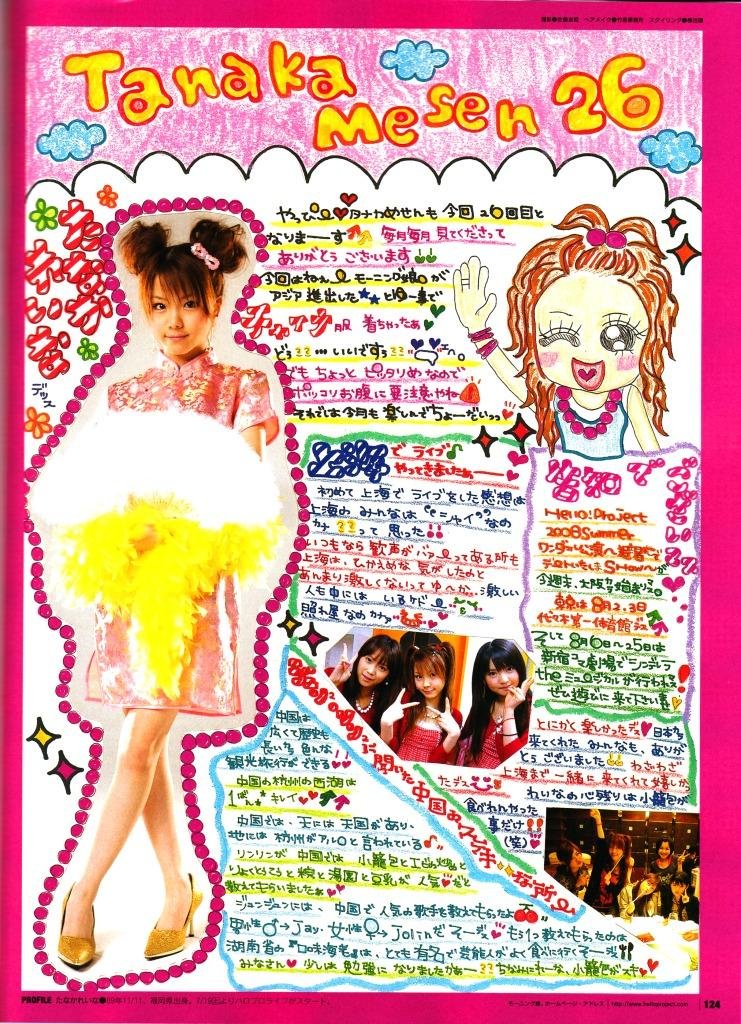 Tanaka
Mesen 26
たなか
れいな
デッス
やっぴ〜♥タナカめせんも 今回 26回目と
なりまーーす 毎月毎月 見てくださって
ありがとう ございます
今回はねぇ モーニング娘。が
アジア 進出した★★ と同一事で
チャイナ服 着ちゃったぁ♥
どう?? … いいですぅ??
でも ちょっと ピッタリめ なので
ポッコリお腹に 要注意やね
それでは今月も 楽しんでちょーだいっっ
上海でライブ♪
やってきましたぁーー♥
初めて 上海で ライブをした 感想は
上海の みんなは "シャイ"なの
カナ??って 思った!!
いつもなら 歓声が バァーってある所も
上海は、ひかえめな 気がしたのと
あんまり 激しくないってゆーか…激しい
人も中には いるケド
照れ屋 なのカナ
告知デェス
Hello! Project
2008 Summer
ワンダフル公演へ 難波で
SHOWへが
今週末、大阪から始まりマス。
東京は 8月2.3日
代々木第一体育館デス
そして 8月6日〜25日は
新宿コマ劇場でシンデレラ
theミュージカルが行われる!
ぜひ 遊びに 来て下さい
とにかく 楽しかったデス♥日本から
来てくれた みんなも、ありが
とう ございました!! わざわざ
上海まで 一緒に 来てくれて 嬉しかっ
たデス
れいなの心残りは小籠包が
食べれんやった
事だけ!!
(笑)
に 聞いた 中国のステキな所
中国は
広くて 歴史も
長いから 色んな
観光旅行ができる♥!!
中国の杭州の西湖は
1ばん。キレイ
中国では、天には 天国が あり、
地には 杭州がアルロと 言われている
リンリンが 中国では 小籠包と
りょくとうこうと 粽と 湯圓と 豆乳が 人気♥だと
教えてもらいましたぁ
ジュンジュンには、中国で 人気の歌手を教えてもらったよ
男性♂→Jay、女性♀→Jolinだそーデス♥ もう1つ 教えてもらったのは
湖南省の『口味海老』は、とても 有名で 芸能人が よく 食べに行くそーデス!!
みなさん♥少しは 勉強に なりましたかぁー?? ちなみにれーな、小籠包がスキ♥
PROFILE たなかれいな●89年11/11、福岡県出身。7/19日よりハロプロライブがスタート。
モーニング娘。ホームページ・アドレス | http://www.helloproject.com 124